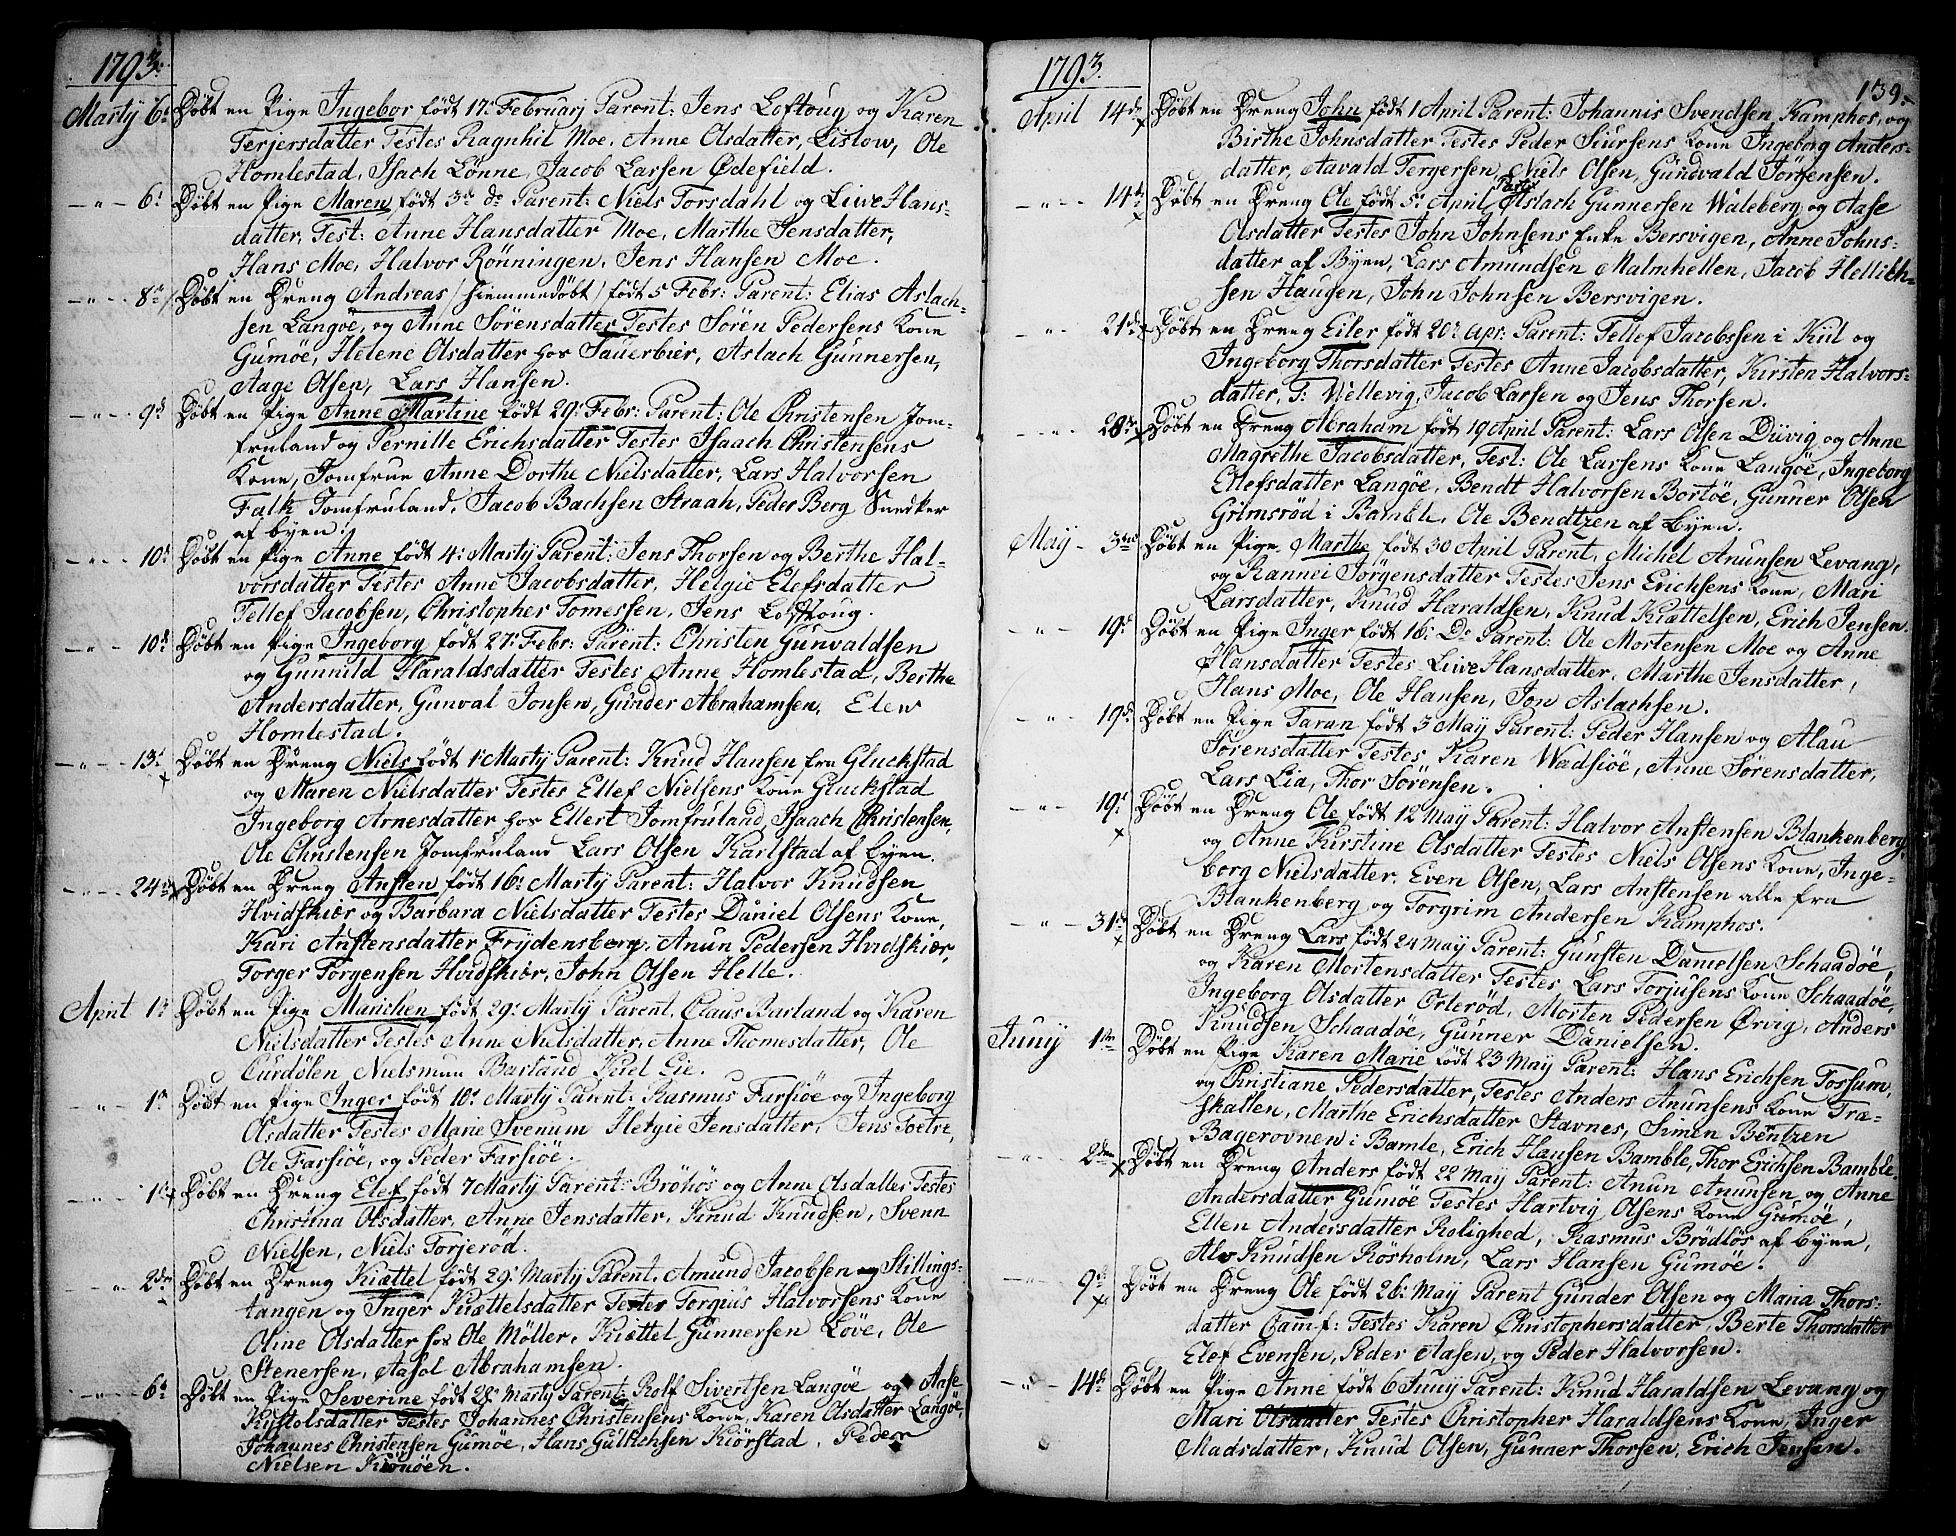 1793.
Marty 6t Døbt en Pige Ingebor født 17t Februarj Parent: Jens Loftoug og Karen
Terjersdatter Testes Ragnhil Moe, Anne Olsdatter, Lislow, Ole
Homlestad, Isach Lønne, Jacob Larsen Ødefield.
– " – 6t Døbt en Pige Maren født 3de ds Parent: Niels Torsdahl og Liwe Hans-
datter, Test: Anne Hansdatter Moe, Marthe Jensdatter,
Hans Moe, Halvor Rönningen, Jens Hansen Moe.
– " – 8de Døbt en Dreng Andreas /hiemmedøbt/ født 5 Febr: Parent: Elias Aslach-
sen Langøe, og Anne Sörensdatter Testes Sören Pedersens Kone
Gumøe, Helene Olsdatter hos Sauerbier, Aslach Gunnersen,
Aage Olsen, Lars Hansen.
– " – 9d Døbt en Pige Anne Martine født 29t Febr: Parent: Ole Christensen Jom-
fruland og Pernille Erichsdatter Testes Isaach Christensens
Kone, Jomfrue Anne Dorthe Nielsdatter, Lars Halvorsen
Falk Jomfruland, Jacob Bachsen Straah, Peder Berg Snedker
af byen.
– " – 10d Døbt en Pige Anne født 4t Marty Parent: Jens Thorsen og Berthe Hal-
vorsdatter Testes Anne Jacobsdatter, Helgie Elefsdatter
Tellef Jacobsen, Christopher Tomessen, Jens Loftoug.
– " – 10d Døbt en Pige Ingeborg født 27t Febr: Parent: Christen Gunvaldsen
og Gunnild Haraldsdatter Testes Anne Homlestad, Berthe
Andersdatter, Gunval Jonsen, Gunder Abrahamsen, Elew
Homlestad.
– " – 13d Døbt en Dreng Niels født 1t Marty Parent: Knud Hansen fra Gluckstad
og Maren Nielsdatter Testes Ellef Nielsens Kone Gluckstad
Ingeborg Arnesdatter hos Ellert Jomfruland, Isaach Christensen,
Ole Christensen Jomfruland Lars Olsen Karlstad af byen.
– " – 24de Døbt en Dreng Ansten født 16t Marty Parent: Halvor Knudsen
Hvidskiær og Barbara Nielsdatter Testes Daniel Olsens Kone,
Kari Anstensdatter Frydensberg, Anun Pedersen Hvidskiær,
Torger Torgensen Hvidskiær, John Olsen Helle.
April 1t Døbt en Pige Marichen født 29t Marty Parent, Claus Barland og Karen
Nielsdatter Testes Anne Nielsdatter, Anne Thomesdatter, Ole
Curdølen Nielsmun Barland Kiel Eie.
– " – 1t Døbt en Pige Inger født 10t Marty Parent: Rasmus Farsiøe og Ingeborg
Olsdatter Testes Marie Svenum Helgie Jensdatter, Jens Foetre,
Ole Farsiøe, og Peder Farsiøe.
– " – 1t Døbt en Dreng Elef født 7 Marty Parent: Bröhos og Anne Olsdatter Testes
Christina Olsdatter, Anne Jensdatter, Knud Knudsen, Svenn
Nielsen, Niels Torjerød.
– " – 2den Døbt en Dreng Kiættel født 29t Marty Parent. Amund Jacobsen Stillings-
tangen og Inger Kiættelsdatter Testes Torgius Halvorsens Kone
Oline Olsdatter hos Ole Møller, Kiettel Gunnersen Løve, Ole
Stenersen, Aasol Abrahamsen.
– " – 6t Døbt en Pige Severine født 28t Marty Parent: Rolf Sivertsen Langøe og Aase
Kittolsdatter Testes Johannes Christensens Kone, Karen Olsdatter Langøe,
Johannes Christensen Gumøe, Hans Gullichsen Kiörstad, Peder
Nielsen Kiønøen.
1793.
139.
April 14de Døbt en Dreng John født 1 April Parent: Johannis Svendsen Kamphos, og
Birthe Johnsdatter Testes Peder Siursens Kone Ingeborg Anders-
datter, Aavald Tergersen, Niels Olsen, Gundvald Jörgensen.
– " – 14de Døbt en Dreng Ole født 5t April Parent Aslach Gunnersen Waleberg og Aase
Olsdatter Testes John Johnsens Enke Bersvigen, Anne Johns-
datter af Byen, Lars Amundsen Malmhellen, Jacob Hellich-
sen Haugen, John Johnsen Bersvigen.
– " – 21de Døbt en Dreng Eiler født 20t Apr: Parent: Tellef Jacobssen i Kiil og
Ingeborg Thorsdatter Testes Anne Jacobsdatter, Kirsten Halvors-
datter, T: Wellevig, Jacob Larsen og Jens Thorsen.
– " – 28de Døbt en Dreng Abraham født 19 April Parent: Lars Olsen Düvig og Anne
Magrethe Jacobsdatter, Test: Ole Larsens Kone Langøe, Ingeborg
Ellefsdatter Langøe, Bendt Halvorsen Bortøe, Gunner Olsen
Grimsrød i Bamble, Ole Bendtzen af byen.
May – 3die Døbt en Pige Marthe født 30 April Parent, Michel Anunsen Levang,
og Rannei Jörgensdatter Testes Jens Erichsens Kone, Mari
Larsdatter, Knud Haraldsen, Knud Kiættelsen, Erich Jensen.
– " – 19d Døbt en Pige Inger født 16t Ds Parent: Ole Mortensen Moe og Anne
Hansdatter Testes Liwe Hansdatter, Marthe Jensdatter,
Hans Moe, Ole Hansen, Jon Aslachsen.
– " – 19d Døbt en Pige Taran født 3 May Parent: Peder Hansen og Alau
Sörensdatter Testes, Karen Wadsiöe, Anne Sörensdatter,
Lars Lia, Thor Sörensen.
– " – 19t Døbt en Dreng Ole født 12 May Parent: Halvor Anstensen Blankenberg,
og Anne Kirstine Olsdatter Testes Niels Olsens Kone, Inge-
borg Nielsdatter, Even Olsen, Lars Anstensen alle fra
Blankenberg og Torgrim Andersen Kamphos.
– " – 31de Døbt en Dreng Lars født 24 May Parent: Gunsten Danielsen Schaadøe,
og Karen Mortensdatter Testes Lars Torjusens Kone Schaadøe,
Ingeborg Olsdatter Orterød, Morten Pedersen Ørvig, Anders
Knudsen Schaadøe, Gunner Danielsen.
Juny 1ste Døbt en Pige Karen Marie født 23 May Parent: Hans Erichsen Fossum,
og Christiane Pedersdatter, Testes Anders Anunsens Kone Træ-
skallen, Marthe Erichsdatter Stavnes, Simen Bentzen
Bagerovnen i Bamle, Erich Hansen Bamble, Thor Erichsen Bamble.
– " – 2den Døbt en Dreng Anders født 22 May Parent: Anun Anunsen, og Anne
Andersdatter Gumøe Testes Hartvig Olsens Kone Gumøe,
Ellen Andersdatter Rolighed, Rasmus Brödløs af byen,
Alv Knudsen Rosholm, Lars Hansen Gumøe.
– " – 9d Døbt en Dreng Ole født 26t May Parent Gunder Olsen og Maria Thors-
datter Camf: Testes Karen Christophersdatter, Berte Thorsdatter
Elef Evensen, Peder Aasen, og Peder Halvorsen.
– " – 14d Døbt en Pige Anne født 6 Juny Parent: Knud Haraldsen Levang og
Mari Olsdatter Testes Christopher Haraldsens Kone, Inger
Madsdatter, Knud Olsen, Gunner Thorsen, Erich Jensen.